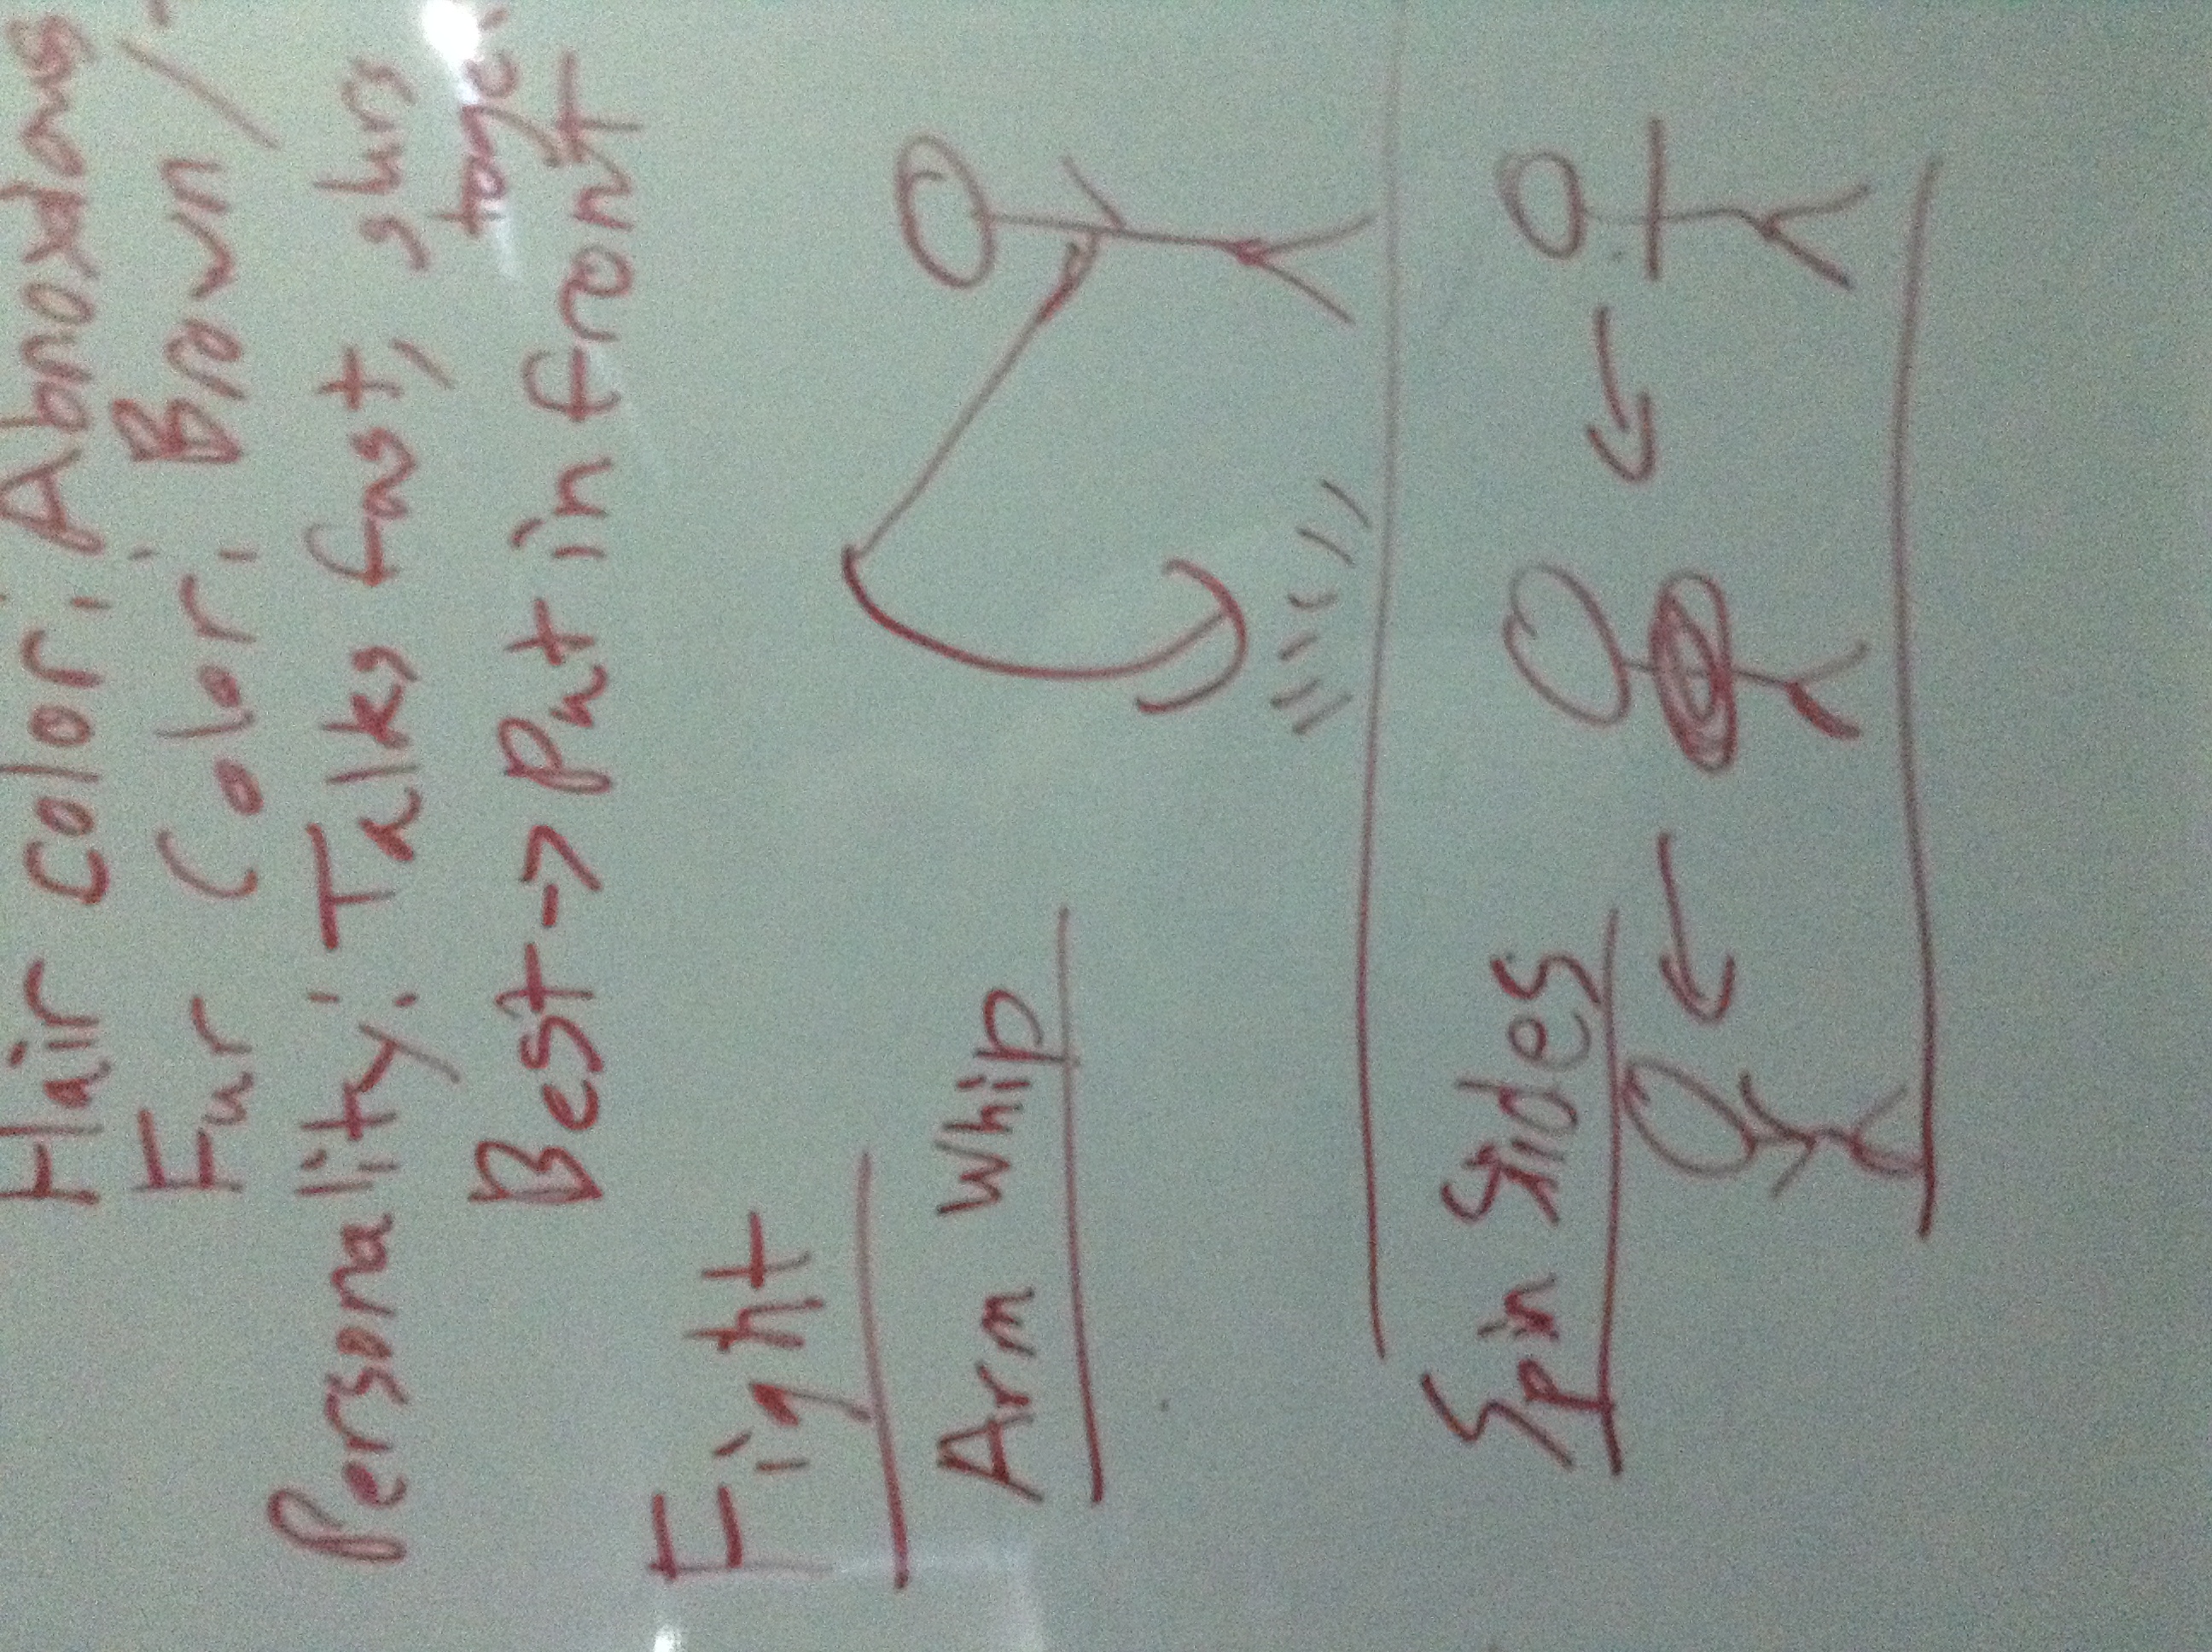 Hair color: Abnoxious
Fur Color: Brown /
Personality: Talks fast, slurs
toge
Best -> Put in front
Fight
Arm Whip
Spin Slides